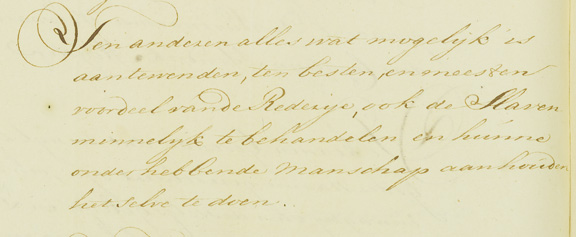 Ten anderen alles wat mogelijk is
aantewenden, ten besten, en meesten
voordeel van de Rederije, ook de Slaven
minnelijk te behandelen en hunne
onder hebbende Manschap aanhouden
het selve te doen.